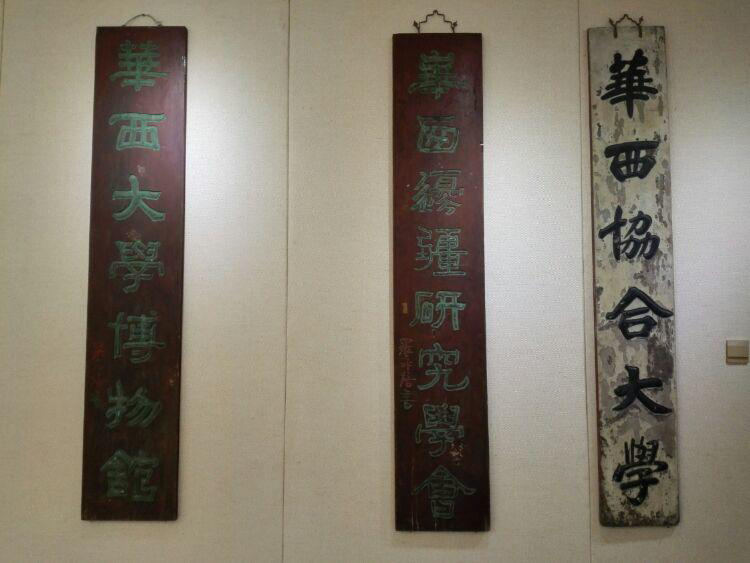 華西大學博物館
華西邊疆研究學會
華西協合大學